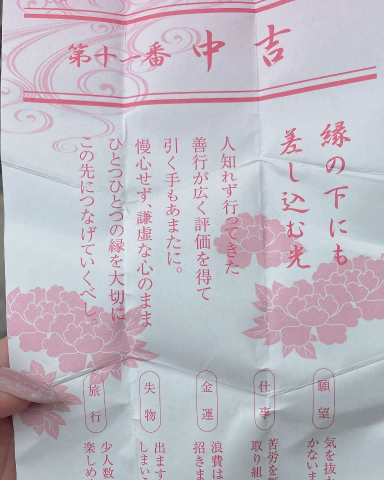 第十一番 中吉
縁の下にも
差し込む光
人知れず行ってきた
善行が広く評価を得て
引く手もあまたに。
慢心せず、謙虚な心のまま
ひとつひとつの縁を大切に
この先につなげていくべし。
願望
気を抜か
かないま
仕事
苦労を
取り組
金運
浪費は
招きま
失物
出ます
しまい
旅行
少人数
楽しめ